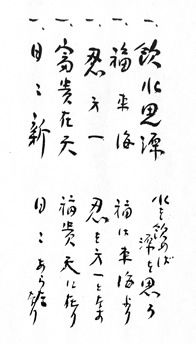 一、飲水思源
水を飲めば
源を思う
一、福来海
福は来海より
一、忍方一
忍を方一となす
一、富貴在天
福貴天に在り
一、日々新
日々あらたなり